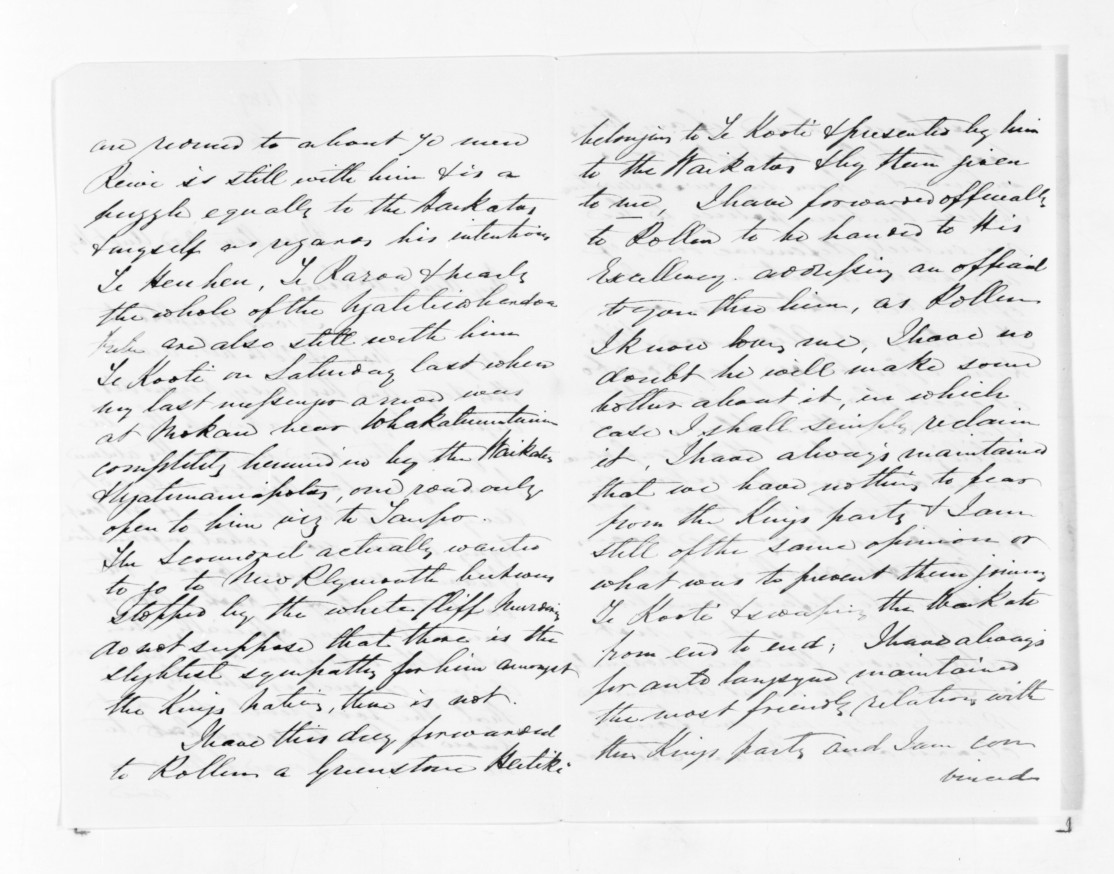 are reduced to about 70 men
Rewi is still with him & is a
puzzle equally to the Waikatos
& myself as regards his intentions
Te Heuheu, Te Raroa & nearly
the whole of the Ngatituwharetoa
tribe are also still with him
Te Kooti on Saturday last when
my last messenger arrived was
at Mokau near
completely hemmed in by the Waikatos
& Ngatimaniapotos, one road only
open to him viz to Taupo.
The Scoundrel actually wanted
to go to New Plymouth but was
stopped by the White Cliff Murders
do not suppose that there is the
slightest sympathy for him amongst
the Kings natives, there is not.
I have this day forwarded
to Rolleston a Greenstone Heitiki
belonging to Te Kooti & presented by him
to the Waikatos & by them given
to me, I have forwarded officially
to Pollen to be handed to His
Excellency. addressing an official
to you thro him, as Pollen
I know loves me, I have no
doubt he will make some
bother about it, in which
case I shall simply reclaim
it, I have always maintained
that we have nothing to fear
from the Kings party & I am
still of the same opinion or
what was to prevent them joining
Te Kooti & sweeping the Waikato
from end to end; I have always
for auld langsyne maintained
the most friendly relations with
the Kings party and I am con
vinced